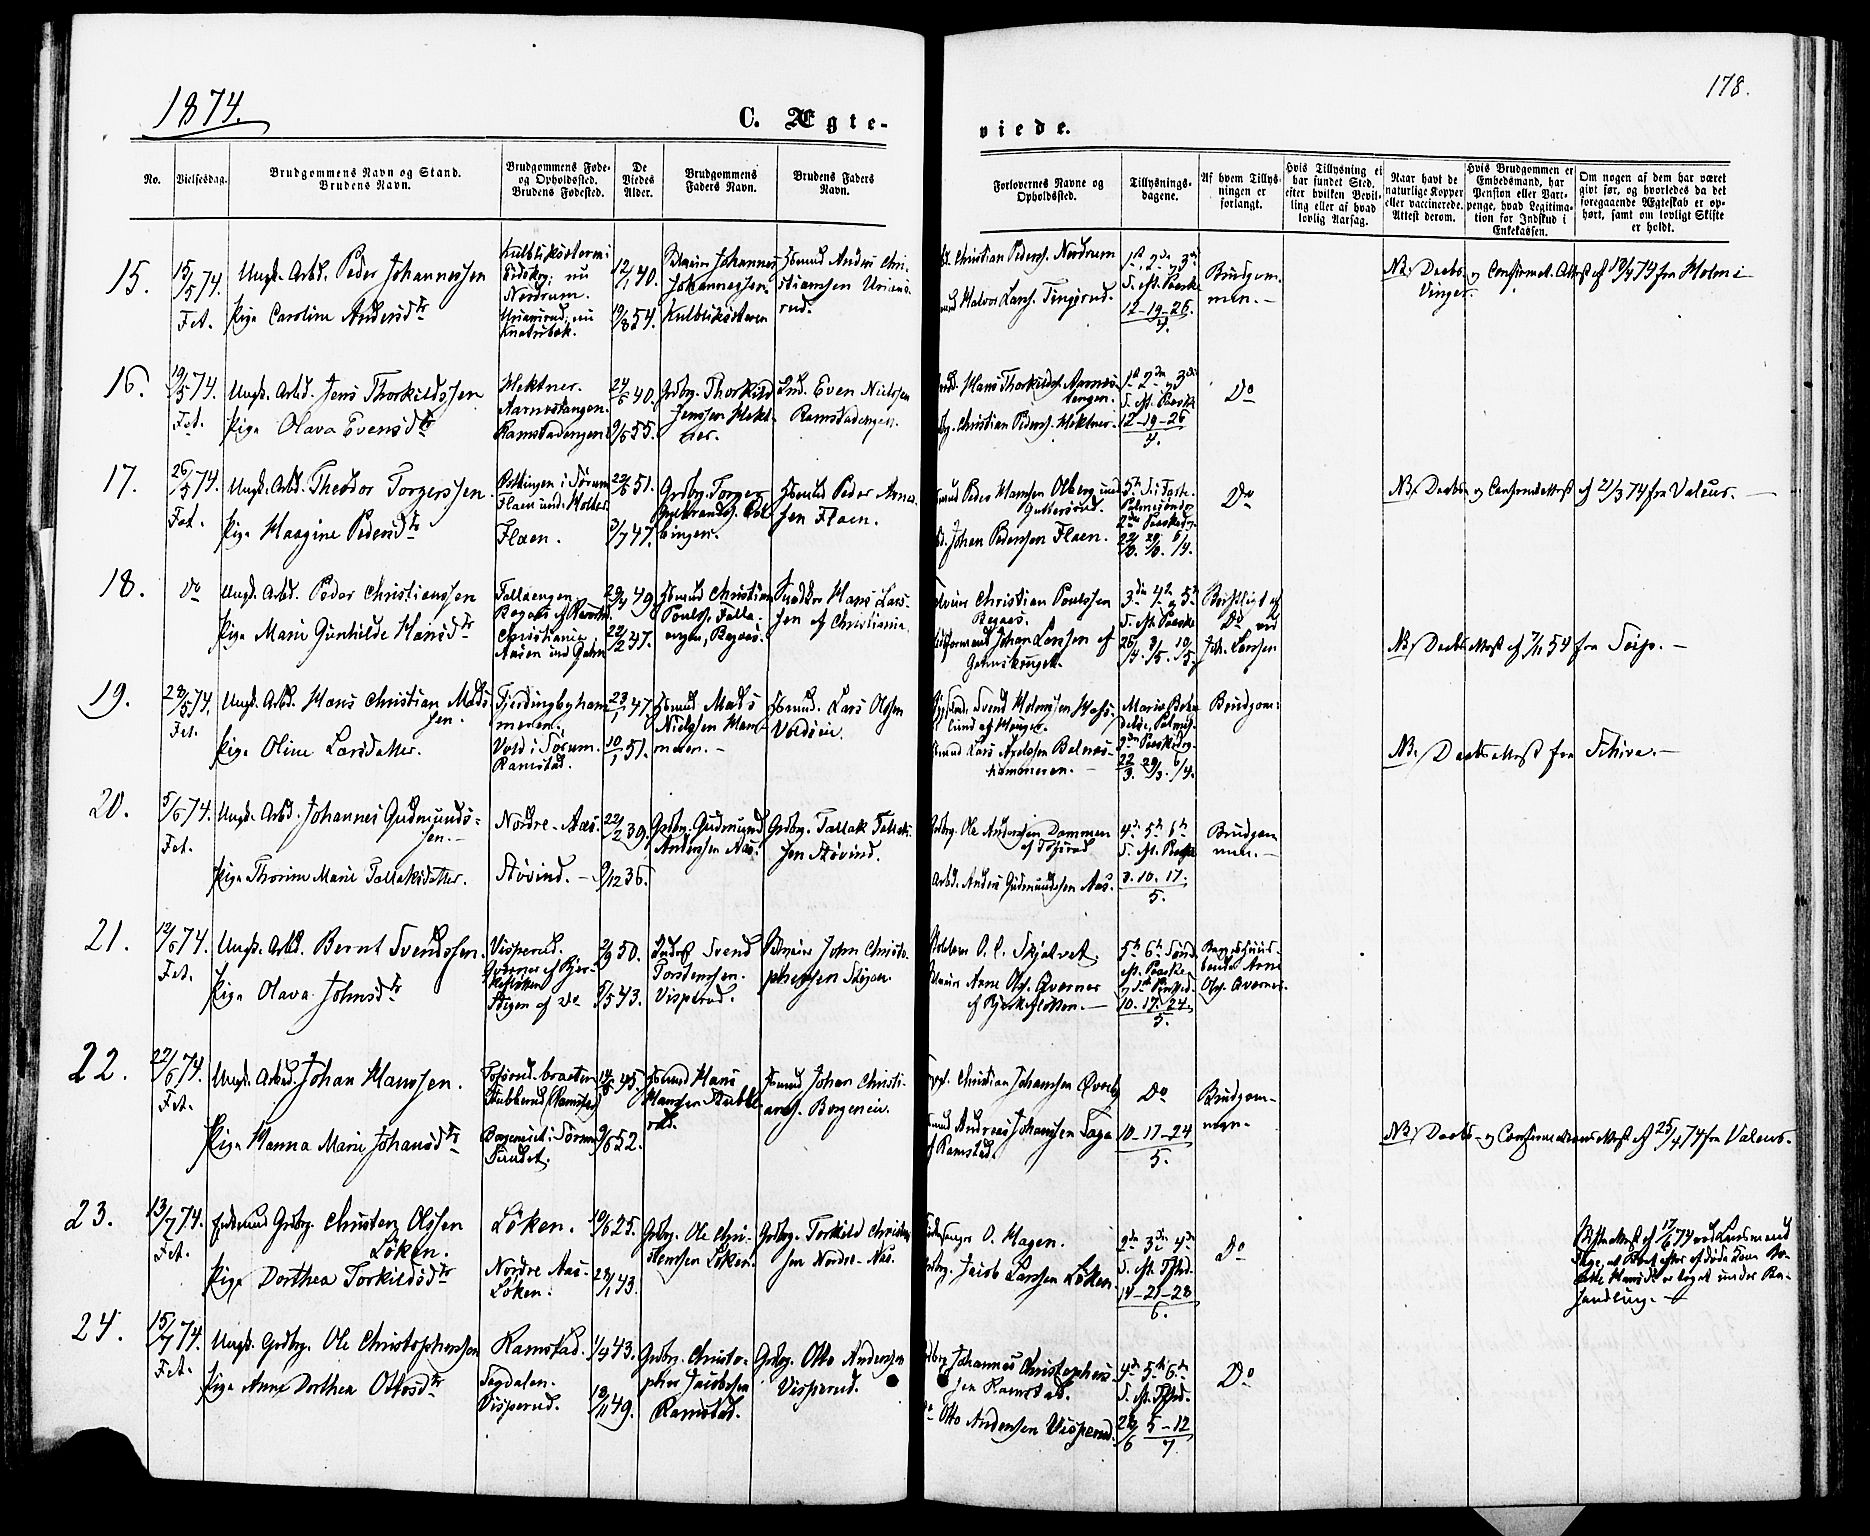 1874.
178.
C. Ægte-
viede.
No.
Vielsesdag.
Brudgommens Navn og Stand.
Brudens Navn.
Brudgommens Føde-
og Opholdssted.
Brudens Fødested.
De
Viedes
Alder.
Brudgommens
Faders Navn.
Brudens Faders
Navn.
Forlovernes Navne og
Opholdssted.
Tillysnings-
dagene.
Af hvem Tillys-
ningen er
forlangt.
Hvis Tillysning ei
har fundet Sted,
efter hvilken Bevil-
ling eller af hvad
lovlig Aarsag.
Naar havt de
naturlige Kopper
eller vaccinerede.
Attest derom.
Hvis Brudgommen er
Embedsmand, har
Pension eller Vart-
penge, hvad Legitima-
tion for Indskud i
Enkekassen.
Om nogen af dem har været
givt før, og hvorledes da det
foregaaende Ægteskab er op-
hørt, samt om lovligt Skifte
er holdt.
15.
15/5 74.
Fet.
Ungk. Arbd. Peder Johannessen
Pige Caroline Andersdtr
nu
Nordrum.
nu
12/1 40.
19/8 54.
Johannes
Johannessen
Husmd Anders Chri-
stiansen
rud.
Christian Peders. Nordrum
Halvor Lars. Tingsrud.
1st 2den 3di
S. eft. Paaske
12-19-26.
4.
Brudgom-
men.-
NB. Daabs- og Confirmat. Attest af 10/4 74 fra Holme
Vinger.
16.
19/5 74.
Fet.
Ungk. Arbd. Jens Thorkildssen
Pige Olava Evensdtr
Hektner.
Aarnestangen.
Ramstadengen
24/6 40.
9/6 55.
Grdbr. Thorkild
Jenssen Hekt-
ner.
Ind. Even Nielsen
Ramstadengen.
Hans Thorkilds. Aarnes-
tangen.
Christian Peders. Hektner.
1st 2den 3di
S. eft. Paaske
12-19-26
4.
Do
17.
26/5 74.
Fet.
Ungk. Arbd. Theodor Torgerssen
Pige Haagine Pedersdtr
i Sørum
Flaen und. Holter
Flaen.
22/6 51.
3/7 47.
Grdbr. Torger
Gulbrands.
Husmd Peder Arne-
sen Flaen.
Peder Hansen Olberg und
Guttersrud.
Johan Pedersen Flaen.
5te S. i Faste
Palmesøndg
2den Paaskedg.
22/3. 29/3. 6/4.
Do
NB. Daabs- og Confirmattest af 21/3 74 fra Valeur.
18.
Do
Ungk. Arbd. Peder Christianssen
Pige Marie Gunhilde Hansdtr
Fallaengen
Christiania
Aasen und
29/4 49
22/2 47.
Husmd Christian
Pouls. Falla-
engen,
Snedker Hans Lars-
sen af Christiania.
Christian Poulssen
Johan Larssen af
3die 4de og 5te
S. eft. Paaske
26/4. 3/5. 10/5.
Do ved
Joh. Larssen
NB. Daabs attest af 7/11 54 fra
19.
28/5 74.
Fet.
Ungk. Arbd. Hans Christian Mads
sen.
Pige Oline Larsdatter.
Fjerdingbyham
meren.
Vold i Sørum.
Ramstad.
23/1 47
10/1 51.
Husmd Mads
Nielsen Ham-
meren.-
Husmd. Lars Olsen
Voldseie.
Svend Holmssen
Lars Axelssen Belnæs-
hammeren.
Marie
2den Paaskedg.
22/3. 29/3. 6/4.
Brudgom:
NB. Daabs attest fra
20.
5/6 74.
Fet.
Ungk. Arbd. Johannes Gudmunds-
sen.-
Pige Thorine Marie Tallaksdatter.
Nordre-Aas.
Støvind.-
22/2 39.
9/12 36.
Grdbr. Gudmund
Anderssen Aas.
Grdbr. Tallak Tallak-
sen Støvind.
Grdbr. Ole Anderssen Dammen
Arbd. Anders Gudmundssen Aas.
4de 5te 6te
S. eft. Paaske
3. 10. 17.
5.
Brudgom
men.-
21.
12/6 74.
Fet.
Ungk. Arbd. Bernt Svendssen.
Pige Olava Johnsdtr
Visperud.
Stigen af Do
2/9 50.
5/5 43.
Svend
Torstenssen.
Visperud.
John Christo-
phersen Stigen.
O. C. Skjatvet.
Arne Ols. Qverner
5te 6te Sønd.
eft. Paaske
10. 17. 24.
5.
Arne
Ols. Qverner
22.
22/6 74.
Fet.
Ungk. Arbd. Johan Hanssen.
Pige Hanna Marie Johansdtr
Stubberud (Ramstad)
Borgeneiet i Sørum
14/8 45.
9/6 52.
Husmd Hans
Hansen Stubbe-
rud.
Husmd Johan Christi-
ans. Borgeneie.
Christian Johanssen
Andreas Johanssen
af Ramstad.
Do
10-17-24
5.
Brudgom-
men-
NB. Daabs- og Confirmations attest af 25/4 74 fra Valeur.
23.
13/7 74.
Fet.
Enkemd Grdbr. Christen Olssen
Løken.
Pige Dorthea Torkildsdtr
Løken.
Nordre Aas-
Løken:
10/6 25.
28/1 43.
Grdbr. Ole Chri-
stenssen Løken.
Grdbr. Torkild Christen
sen Nordre-Aas.
O. Hagen.
Grdbr. Jacob Larssen Løken.
2den 3die 4de
S. eft. Tfhd.
14-21-28
6.
Do
Skifteattest af 17/6 74 ved Lensmand
at Boet efter afdøde Kone
Hansdtr er taget under Be-
handling.
24.
15/7 74.
Fet.
Ungk. Grdbr. Ole Christophersen
Pige Anne Dorthea Ottosdtr
Ramstad.
Togdalen.
Visperud.
1/4 43.
18/11 49.
Grdbr. Christo-
pher Jacobssen
Ramstad.
Grdbr. Otto Anderssen
Visperud.
Johannes Christophers-
sen Ramstad.
Otto Anderssen Visperud.
4de 5te 6te
S. eft. Tfhd.
28/6 5-12
7
Do